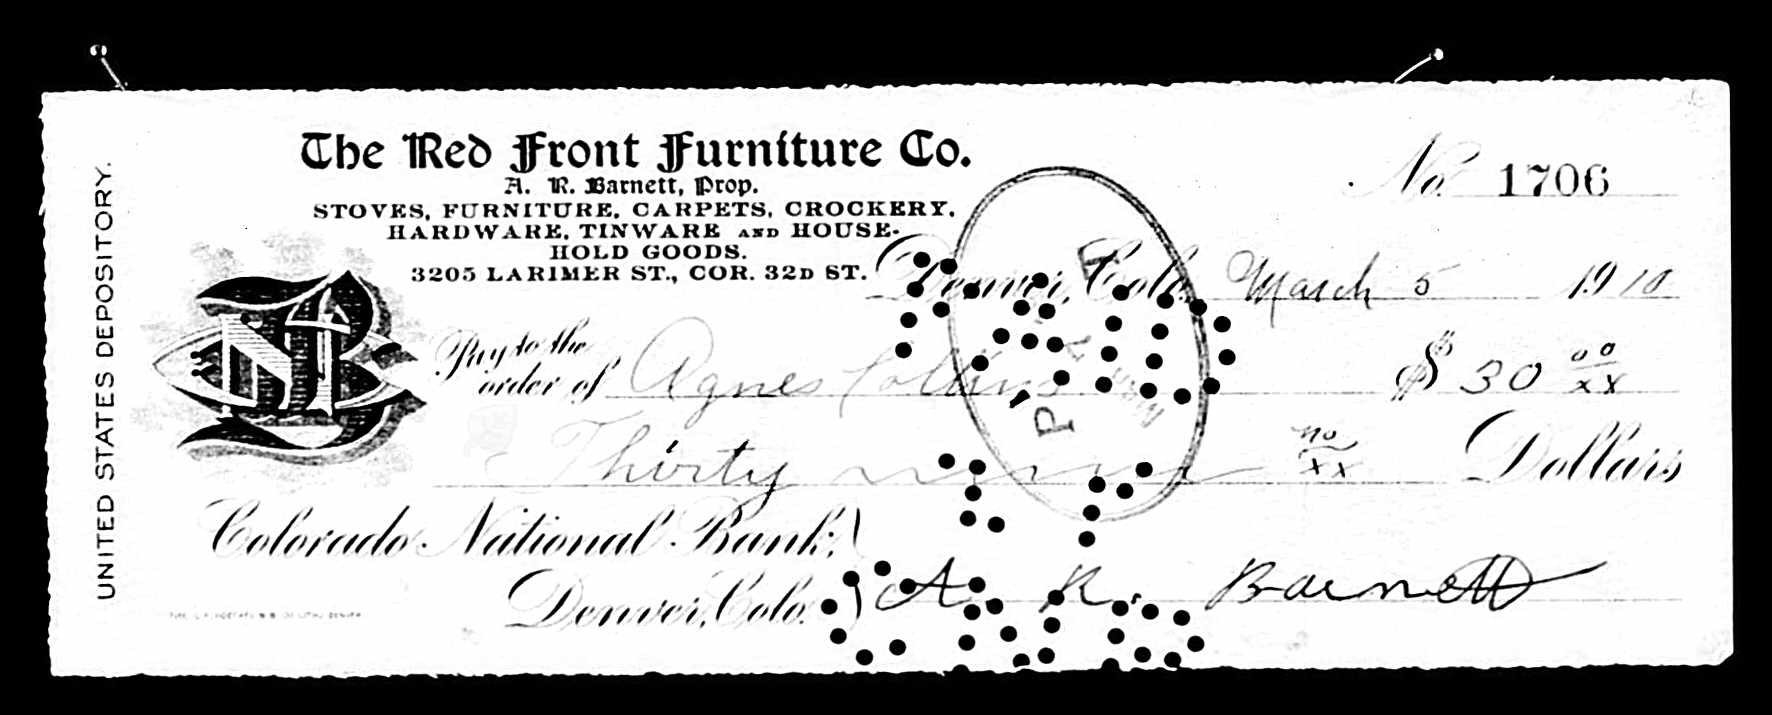 The Red Front Furniture Co.
A. R. Barnett, Prop.
STOVES, FURNITURE, CARPETS, CROCKERY,
HARDWARE, TINWARE AND HOUSE-
HOLD GOODS.
3205 LARIMER ST., COR. 32D ST.
No. 1706
Denver, Colo. March 5 1910
Pay to the
order of Agnes Collins $ 30 00/xx
Thirty no/xx Dollars
Colorado National Bank,
Denver, Colo.
A. R. Barnett
UNITED STATES DEPOSITORY.